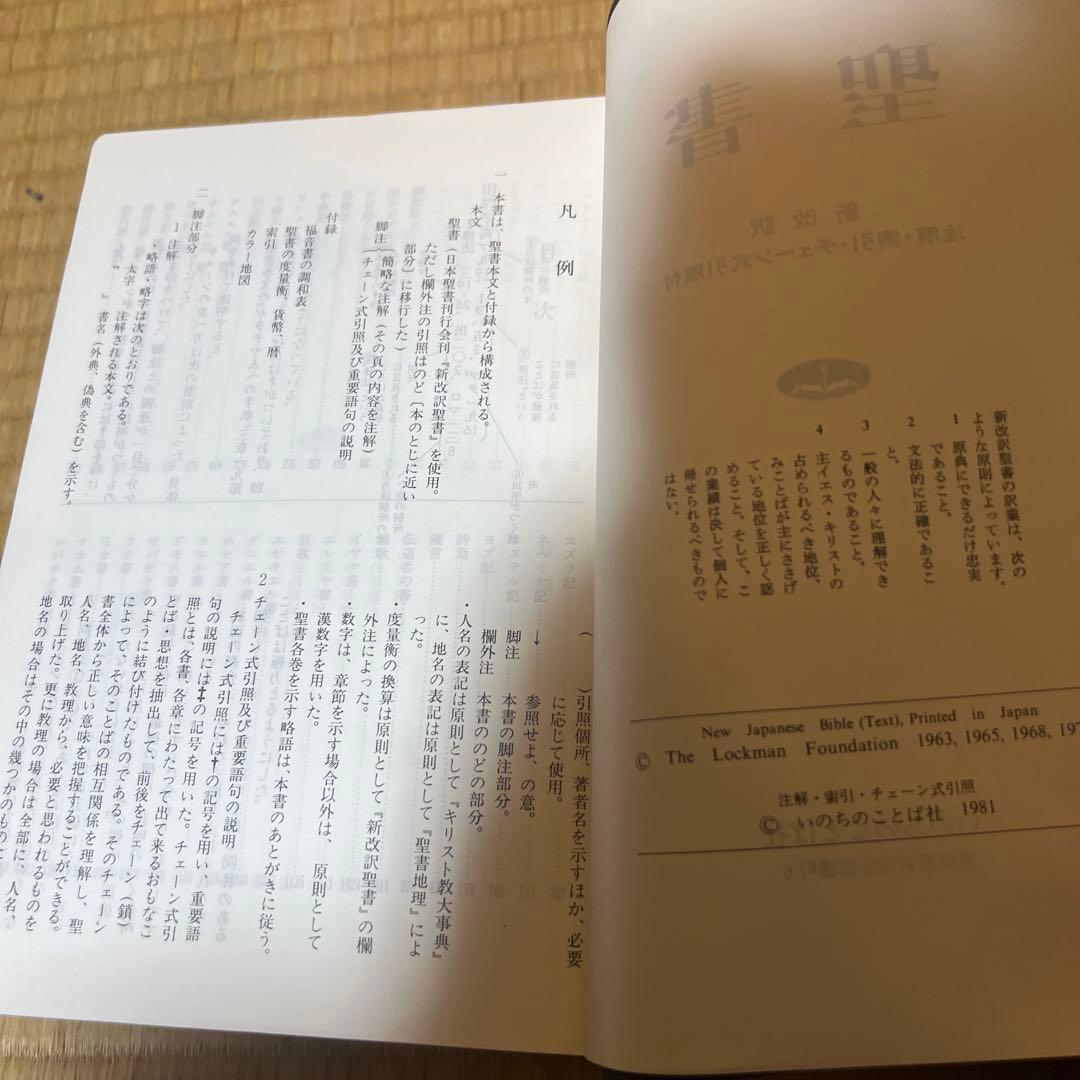 新改訳聖書の訳業は、次の
ような原則によっています。
1 原典にできるだけ忠実
であること。
2 文法的に正確であるこ
と。
3 一般の人々に理解でき
るものであること。
4 主イエス・キリストの
占められるべき地位、
みことばが主にささげ
ている地位を正しく認
めること。そして、こ
の業績は決して個人に
帰せられるべきもので
はない。
New Japanese Bible (Text), Printed in Japan
© The Lockman Foundation 1963, 1965, 1968, 197
注解・索引・チェーン式引照
© いのちのことば社 1981
聖書
新改訳
注解・索引・チェーン式引照付
凡例
一 本書は、聖書本文と付録から構成される。
本文
聖書(日本聖書刊行会刊『新改訳聖書』を使用。
ただし欄外注の引照はのど〔本のとじに近い
部分〕に移行した)
脚注(簡略な注解(その頁の内容を注解)
チェーン式引照及び重要語句の説明
付録
福音書の調和表
聖書の度量衡、貨幣、暦
索引
カラー地図
二 脚注部分
1 注解
・略語・略字は次のとおりである。
太字 注解される本文。
『 』 書名(外典、偽典を含む)を示す。
( )引照個所、著者名を示すほか、必要
に応じて使用。
↓ 参照せよ、の意。
脚注 本書の脚注部分。
欄外注 本書ののどの部分。
・人名の表記は原則として『キリスト教大事典』
に、地名の表記は原則として『聖書地理』によ
った。
・度量衡の換算は原則として『新改訳聖書』の欄
外注によった。
・数字は、章節を示す場合以外は、原則として
漢数字を用いた。
・聖書各巻を示す略語は、本書のあとがきに従う。
2 チェーン式引照及び重要語句の説明
チェーン式引照には†の記号を用い、重要語
句の説明には‡の記号を用いた。チェーン式引
照とは、各書、各章にわたって出て来るおもなこ
とば・思想を抽出して、前後をチェーン(鎖)
のように結び付けたものである。そのチェーン
によって、そのことばの相互関係を理解し、聖
書全体から正しい意味を把握することができる。
人名、地名、教理から、必要と思われるものを
取り上げた。更に教理の場合は全部に、人名、
地名の場合はその中の幾つかのものに